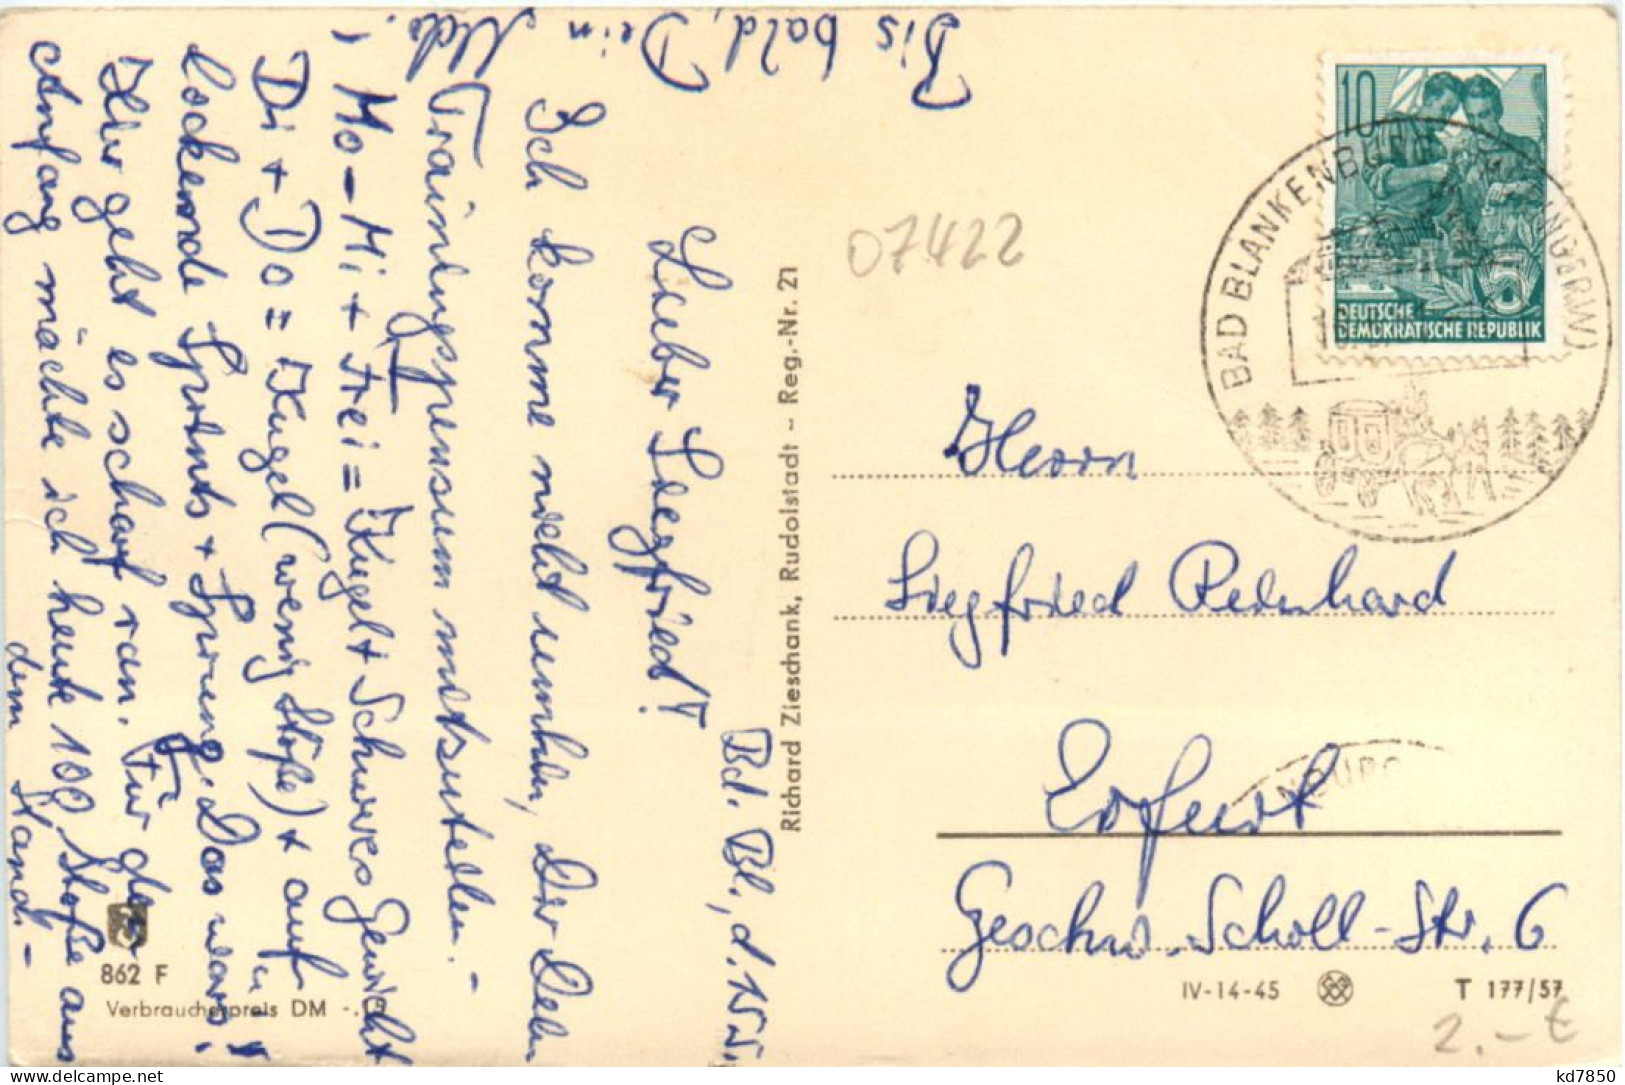 Bd. Bl., d. 15.
Lieber Siegfried!
Ich komme nicht umhin, Dir Dein
Trainingspensum mitzuteilen. -
Mo - Mi + Frei = Kugel + Schweres Gewicht
Di + Do = Kugel (wenig Stöße) + auf
lockernde Sprints + Spring. Das wär's!
Aber geht es scharf ran. Für den
Anfang möchte ich heute 100 Stöße aus
dem Stand. -
Bis bald, Dein
Richard Zieschank, Rudolstadt - Reg.-Nr. 21
862 F
Verbraucherpreis DM
07422
10
DEUTSCHE
DEMOKRATISCHE REPUBLIK
5
BAD BLANKENBURG
Herrn
Siegfried Reinhard
Erfurt
Geschw.-Scholl-Str. 6
IV-14-45
T 177/57
2.- €
kd7850